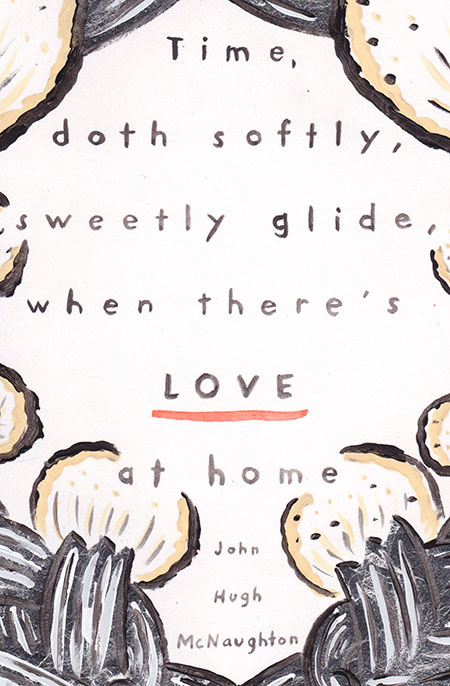 Time,
doth softly,
sweetly glide,
when there's
LOVE
at home
John
Hugh
McNaughton